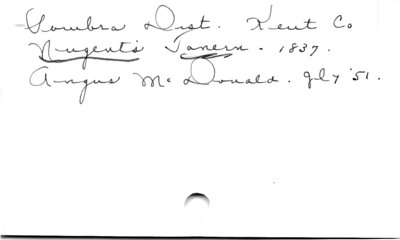 Sombra Dist. Kent Co
Nugent's Tavern. 1837.
Angus McDonald. Jly '51.